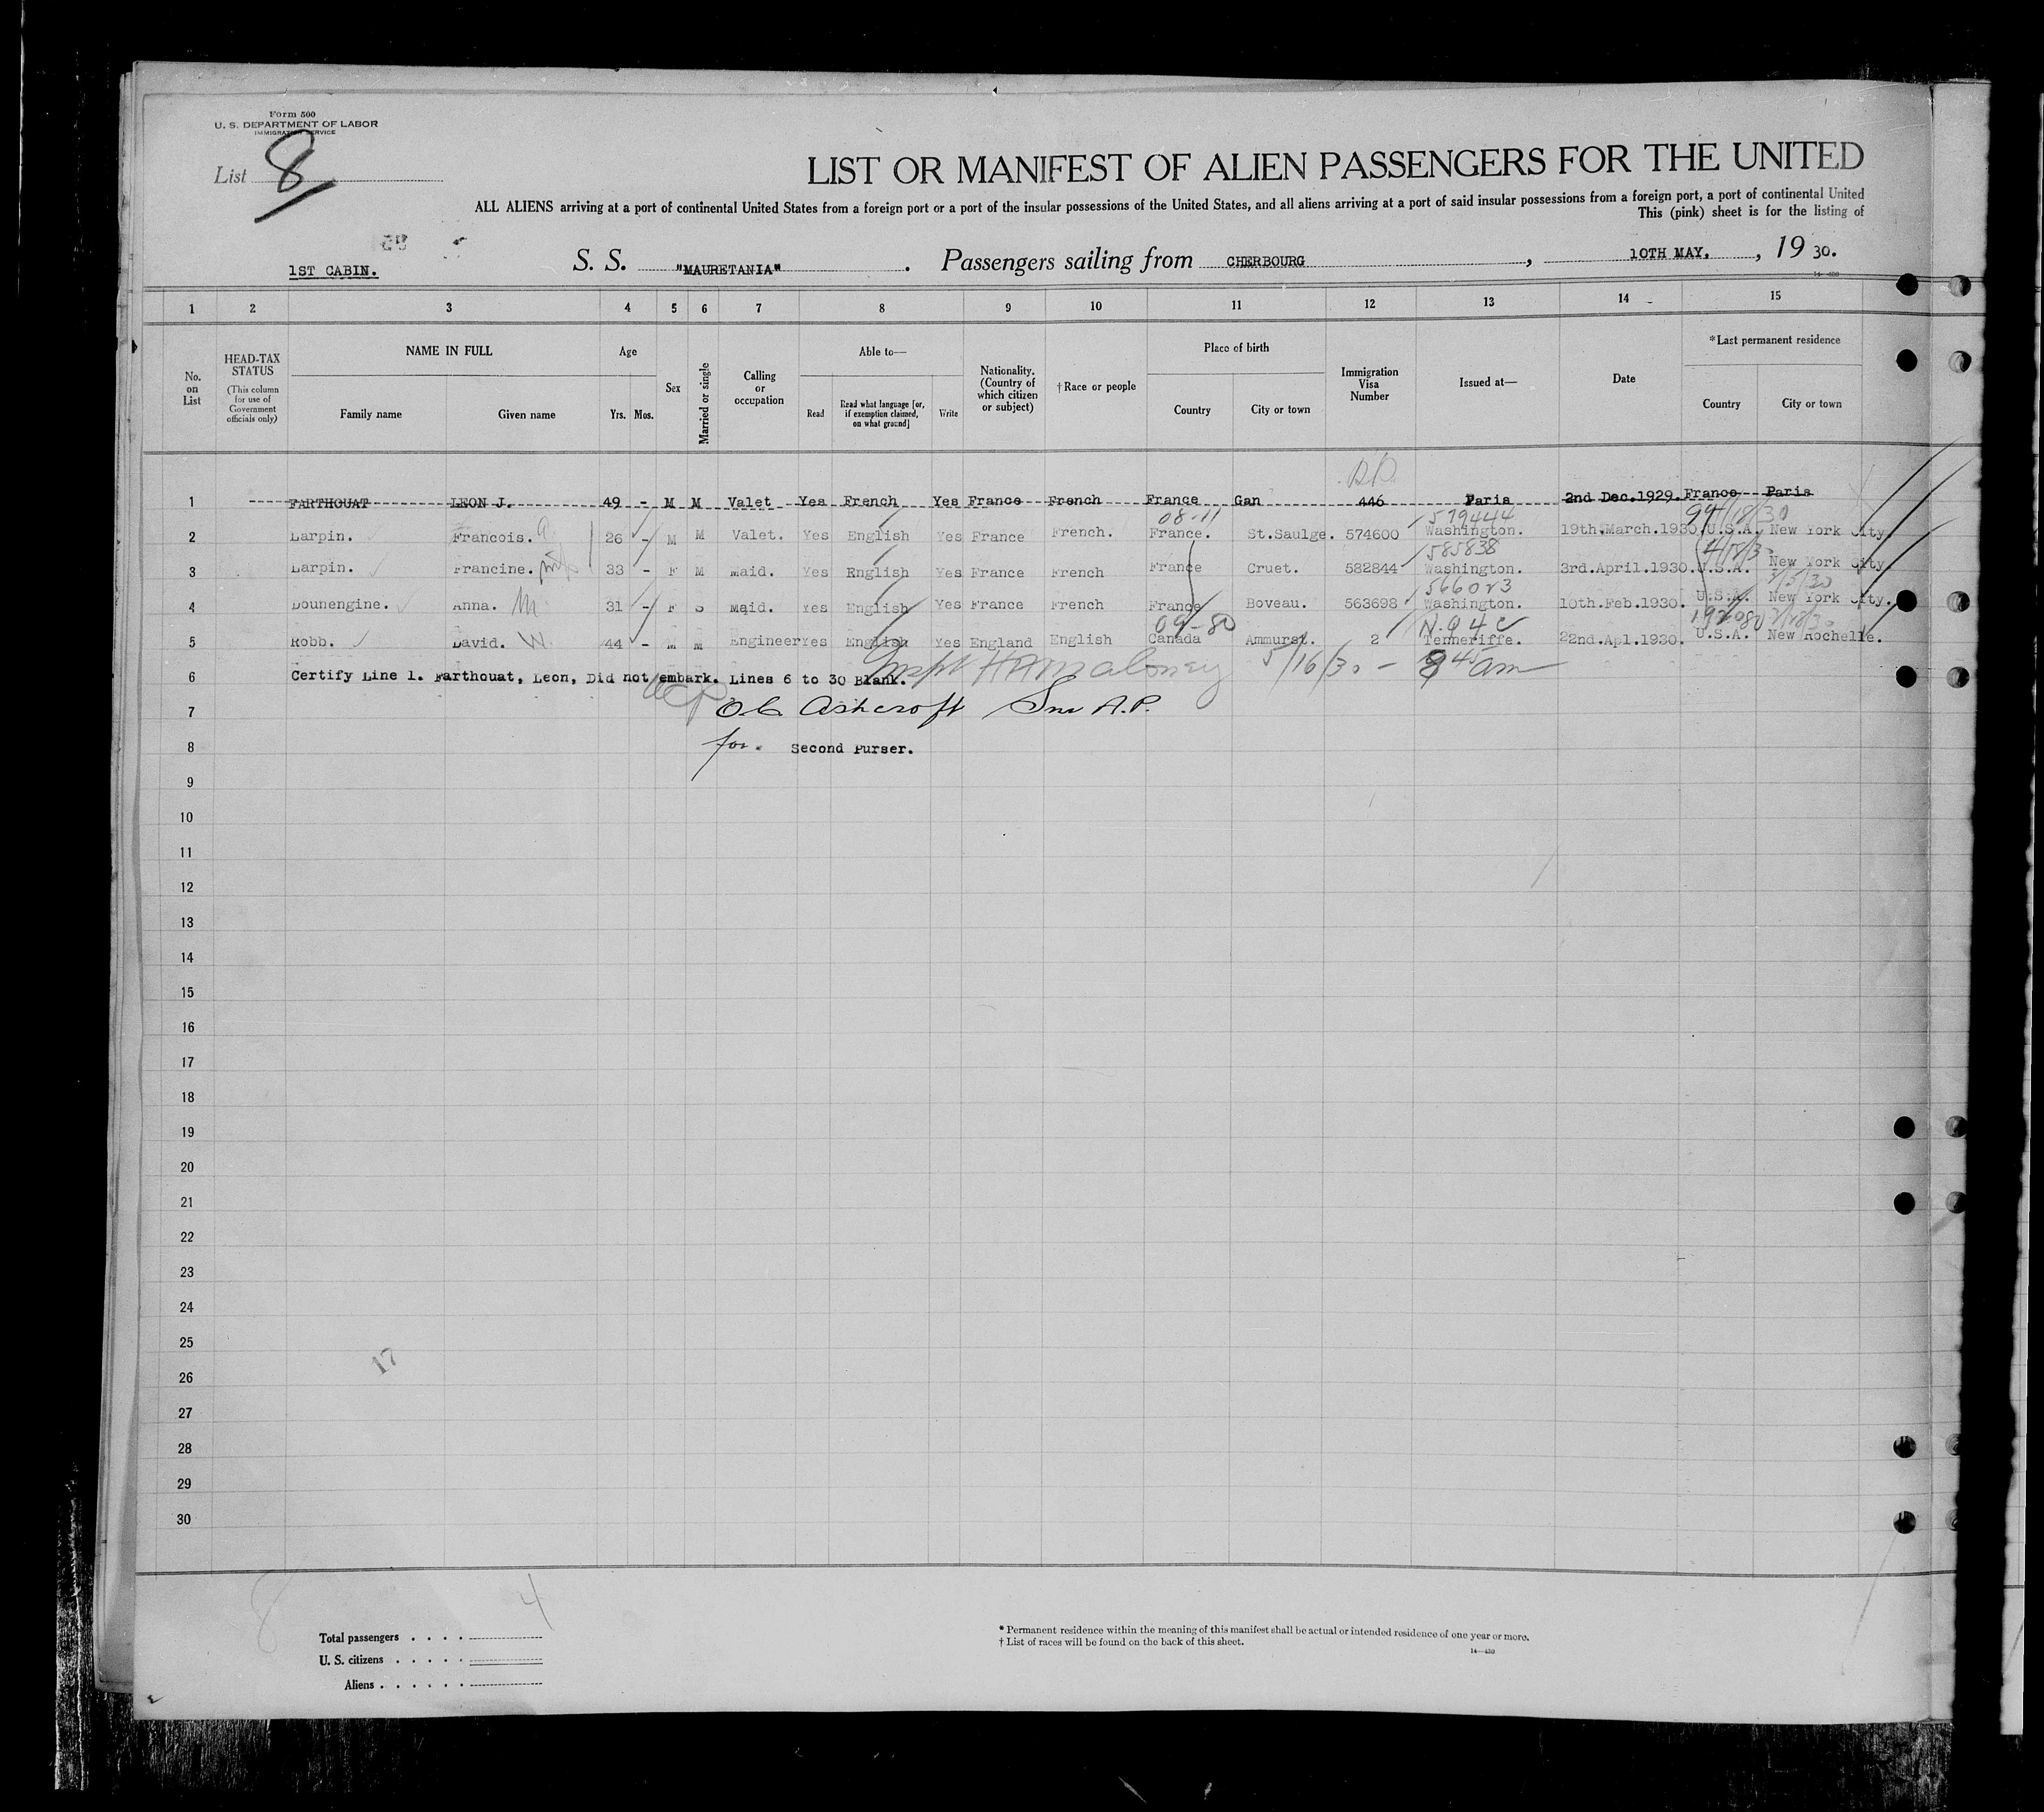 Form 500
U. S. DEPARTMENT OF LABOR
IMMIGRATION SERVICE
List 8
LIST OR MANIFEST OF ALIEN PASSENGERS FOR THE UNITED
ALL ALIENS arriving at a port of continental United States from a foreign port or a port of the insular possessions of the United States, and all aliens arriving at a port of said insular possessions from a foreign port, a port of continental United
This (pink) sheet is for the listing of
1ST CABIN. S. S. "MAURETANIA". Passengers sailing from CHERBOURG, 10TH MAY., 19 30.
1 2 3 4 5 6 7 8 9 10 11 12 13 14 15
No. on List
HEAD-TAX STATUS (This column for use of Government officials only)
NAME IN FULL
Family name Given name
Age
Yrs. Mos.
Sex
Married or single
Calling or occupation
Able to—
Read Read what language [or, if exemption claimed, on what ground] Write
Nationality. (Country of which citizen or subject)
† Race or people
Place of birth
Country City or town
Immigration Visa Number
Issued at—
Date
*Last permanent residence
Country City or town
1 FARTHOUAT LEON J. 49 - M M Valet Yes French Yes France French France Gan 446 Paris 2nd Dec.1929. France Paris
08-11 579444
2 Larpin. Francois. 26 - M M Valet. Yes English Yes France French. France. St.Saulge. 574600 Washington. 19th.March.1930. U.S.A. New York City.
585838
3 Larpin. Francine. 33 - F M Maid. Yes English Yes France French France Cruet. 582844 Washington. 3rd.April.1930. U.S.A. New York City.
566023 2/5/30
4 Dounengine. Anna. M 31 - F S Maid. Yes English Yes France French France Boveau. 563698 Washington. 10th.Feb.1930. U.S.A. New York City.
09-80
5 Robb. David. W. 44 - M M Engineer Yes English Yes England English Canada Ammurst. 2 Tenneriffe. 22nd.Apl.1930. U.S.A. New Rochelle.
6 Certify Line 1. Farthouat, Leon, Did not embark. Lines 6 to 30 Blank. 5/16/30 - 9 45 am
7 Ashcroft Snr A.P.
8 for. Second Purser.
9
10
11
12
13
14
15
16
17
18
19
20
21
22
23
24
25
17
26
27
28
29
30
8 4
Total passengers
U. S. citizens
Aliens
* Permanent residence within the meaning of this manifest shall be actual or intended residence of one year or more.
† List of races will be found on the back of this sheet.
14—430